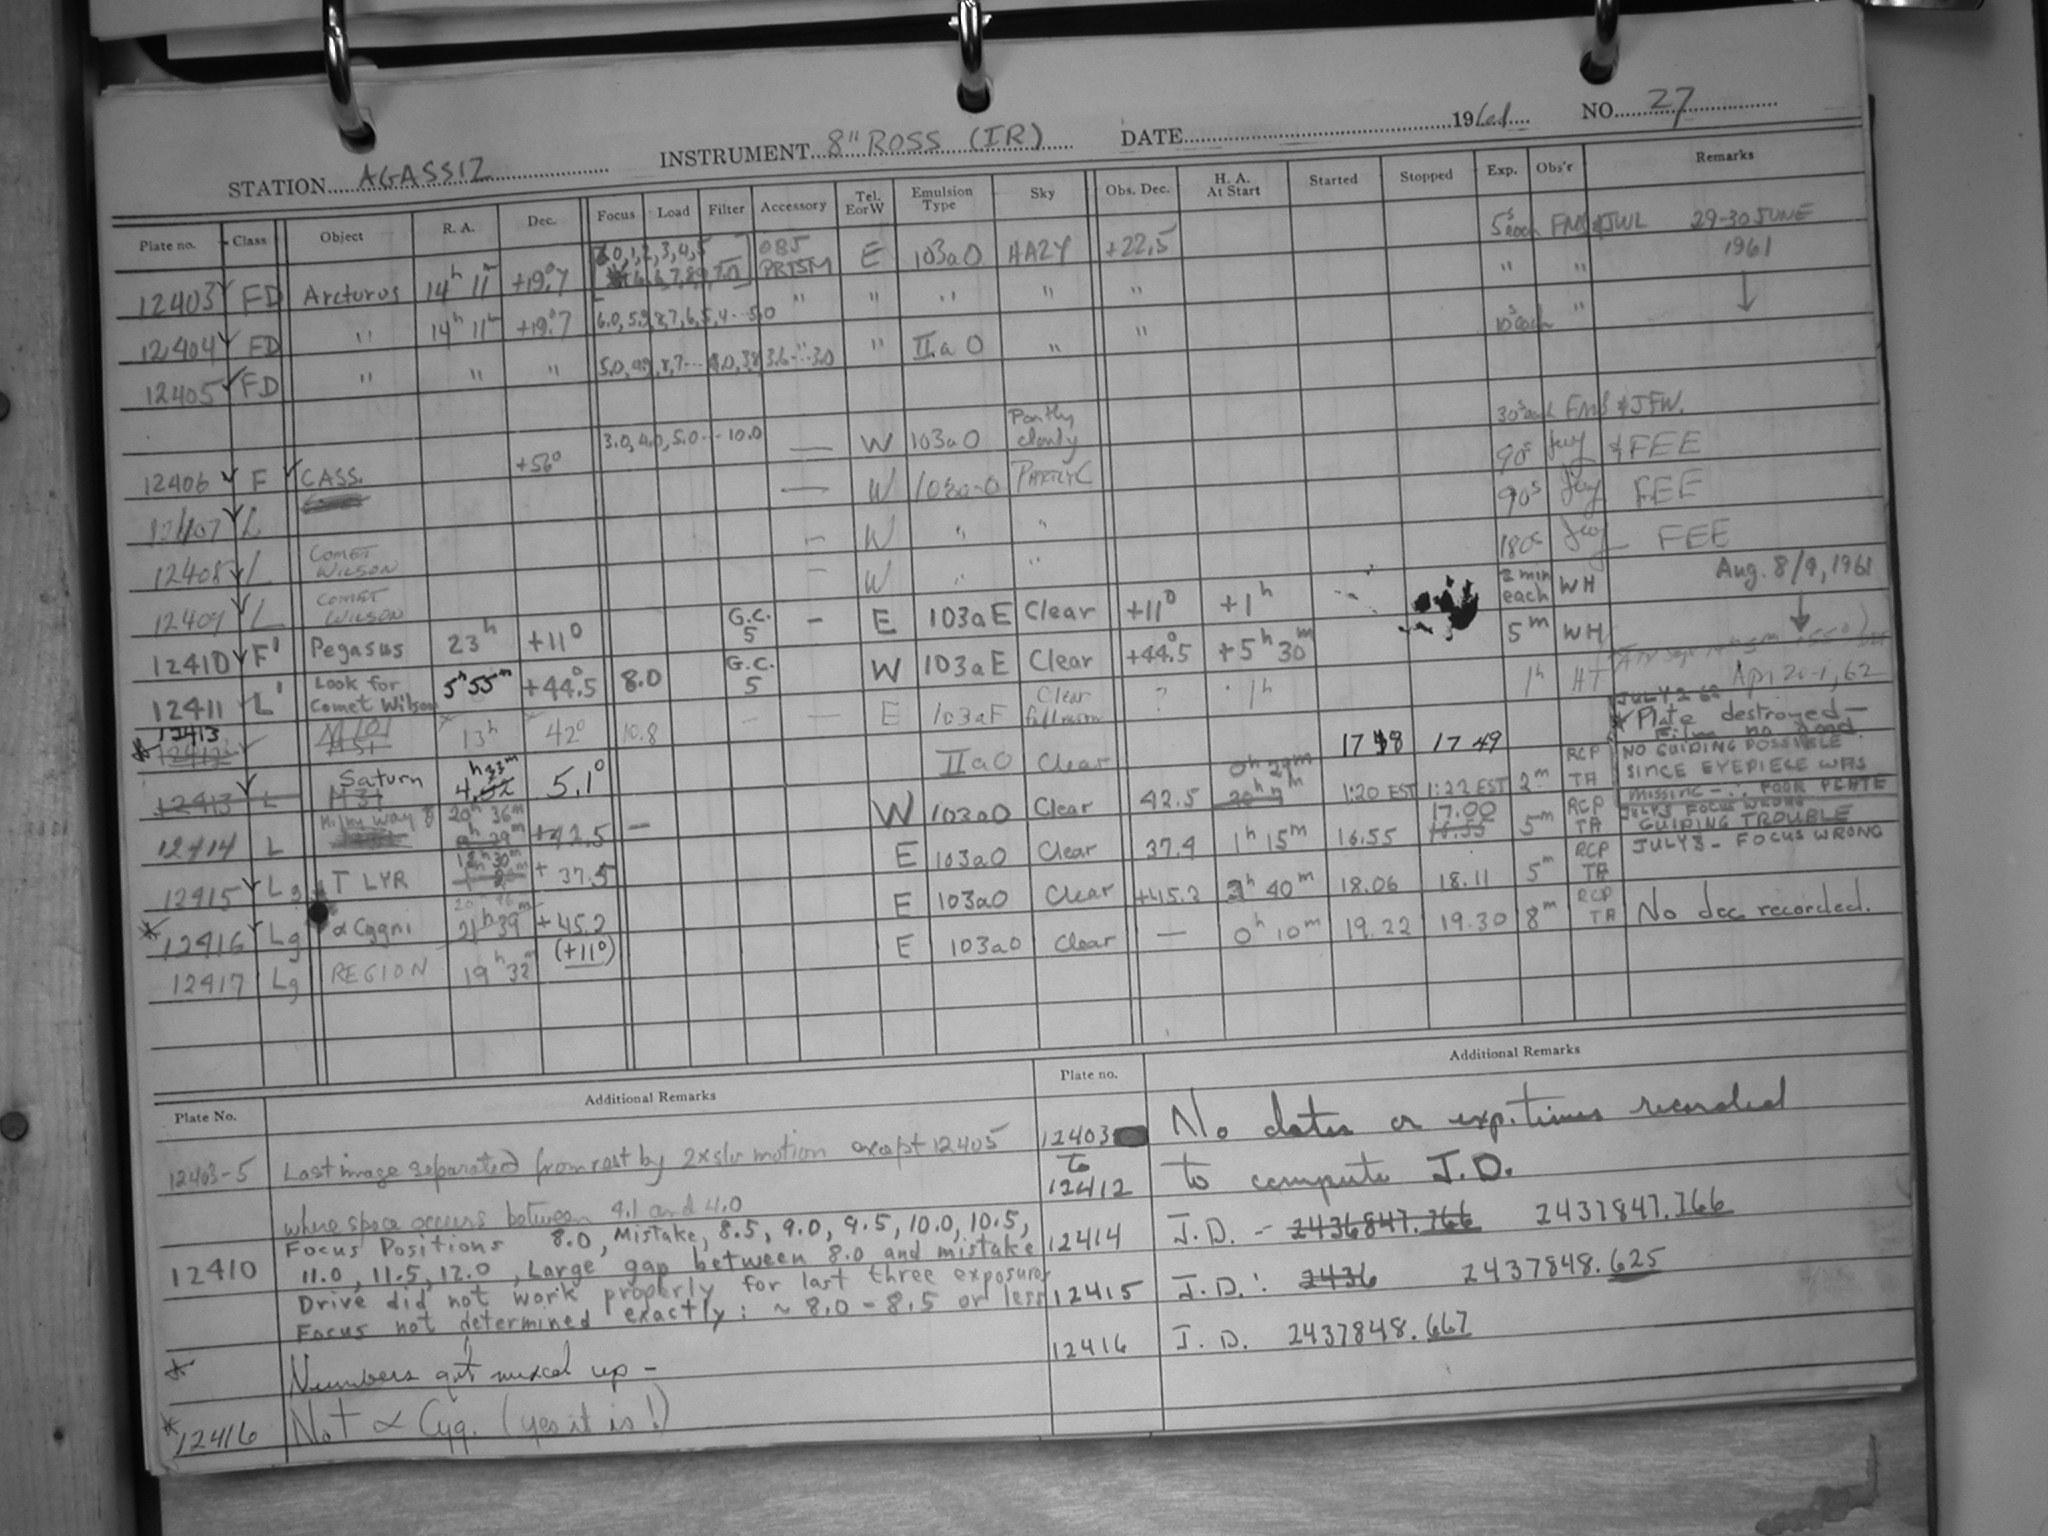 STATION AGASSIZ INSTRUMENT 8" ROSS (IR) DATE 1961 NO. 27
Plate no. Class Object R. A. Dec. Focus Load Filter Accessory Tel. E or W Emulsion Type Sky Obs. Dec. H. A. At Start Started Stopped Exp. Obs'r Remarks
12403 FD Arcturus 14h 11m +19°.7 0,1,2,3,4,5 OBJ PRISM E 103aO HAZY +22.5 5s each FMS & JWL 29-30 JUNE 1961
12404 FD " 14h 11m +19°.7 " " " " " " "
12405 FD " " " " IIaO " " 10s each "
12406 F CASS. +56° 3.0, 4.0, 5.0 -- 10.0 — W 103aO Partly cloudy 30s each FMS & JFW.
12407 L — W 103a-O 90s & FEE
12408 L COMET WILSON — W " " 90s FEE
12409 L COMET WILSON — W " " 180s FEE
12410 F' Pegasus 23h +11° G.C. 5 - E 103aE Clear +11° +1h 2 min each WH Aug. 8/9, 1961
12411 L' Look for Comet Wilson 5h 55m +44°.5 8.0 G.C. 5 W 103aE Clear +44°.5 +5h 30m 5m WH
* 12413 12412 M101 M51 13h 42° 10.8 — — E 103aF Clear full moon ? 1h 1h HT Apr 20-1, 62
12413 L Saturn M31 4,52 h 33m 5.1° IIaO Clear 17 48 17 49 * Plate destroyed — Film no good.
12414 L Milky Way 20h 36m +42.5 — W 103aO Clear 42.5 0h 29m 1:20 EST 1:22 EST 2m RCP TA NO GUIDING POSSIBLE SINCE EYEPIECE WAS MISSING — ∴ POOR PLATE
12415 Lg T LYR + 37.5 E 103aO Clear 37.4 1h 15m 16.55 17.00 16.55 5m RCP TA JULY 3 FOCUS WRONG GUIDING TROUBLE
* 12416 Lg α Cygni 21h 39m +45.2 E 103aO Clear +45.2 40m 18.06 18.11 5m RCP TA JULY 3 - FOCUS WRONG
12417 Lg REGION 19h 32m (+11°) E 103aO Clear — 0h 10m 19.22 19.30 8m RCP TA No dec recorded.
Plate No. Additional Remarks Plate no. Additional Remarks
12403-5 Last image separated from rest by 2x slow motion except 12405
where space occurs between 4.1 and 4.0
12410 Focus Positions 8.0, Mistake, 8.5, 9.0, 9.5, 10.0, 10.5,
11.0, 11.5, 12.0, Large gap between 8.0 and mistake
Drive did not work properly for last three exposures
Focus not determined exactly: ~ 8.0 - 8.5 or less
* Numbers got mixed up —
* 12416 Not α Cyg. (yes it is!)
12403 to 12412 No dates or exp. times recorded
to compute J.D.
12414 J.D. - 2436847.766 2437847.766
12415 J.D.: 2436 2437848.625
12416 J.D. 2437848.667